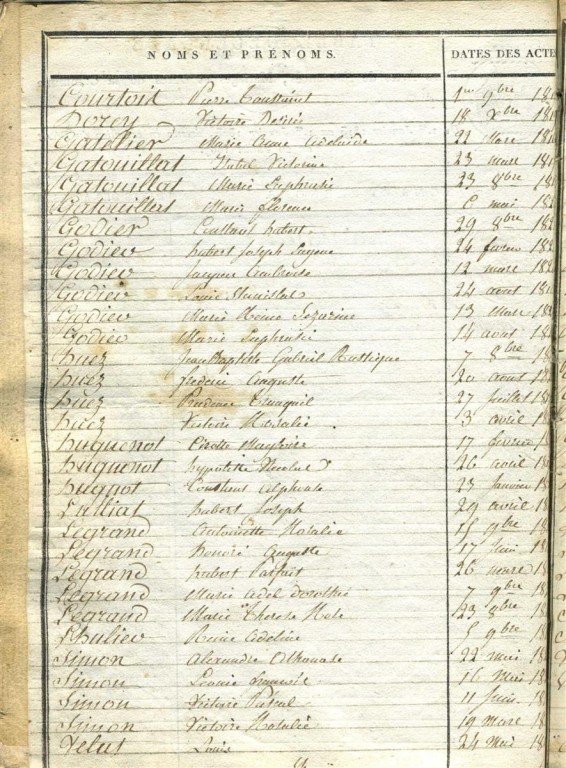 NOMS ET PRÉNOMS. DATES DES ACTE
Courtois Pierre Toussaint 1er 9bre 18
Dorey Victoire Désirée 18 Xbre 18
Gatelier Marie Anne Adelaide 22 Mars 18
Gatouillat Isabel Victorine 23 mars 18
Gatouillat Marie Euphrasie 23 8bre 18
Gatouillat Marie florence 6 mai 18
Godier Constant hubert 29 8bre 18
Godier hubert Joseph Eugene 24 fevrier 18
Godier Jacques Ambroise 12 mars 18
Godier Louis Stanislas 24 aout 18
Godier Marie Reine Cezarine 13 Mars 18
Godier Marie Euphrasie 14 aout 18
huez Jean Baptiste Gabriel Rustique 7 8bre 18
huez frederic Auguste 20 aout 18
huez Prudence Tranquil 27 juillet 18
huez Victoire Rosalie 3 avril 18
huguenot 17 fevrier 18
huguenot hypolitte Nicolas 26 avril 18
hugnot Constant alphonse 23 Janvier 18
L'uillat hubert Joseph 29 avril 18
Legrand Antoinette Rosalie 15 9bre 18
Legrand Honoré Auguste 17 Juin 18
Legrand hubert Parfait 26 mars 18
Legrand Marie adel dorothée 7 9bre 18
Legrand Marie Therese 23 8bre 18
Lhulier Reine Adeline 5 9bre 18
Simon Alexandre Athanase 22 Mai 18
Simon Leonie francoise 16 Mai 18
Simon Victoire Pascal 11 Juin 18
Simon Victoire Natalie 19 Mars 18
Velut Louis 24 Mai 18